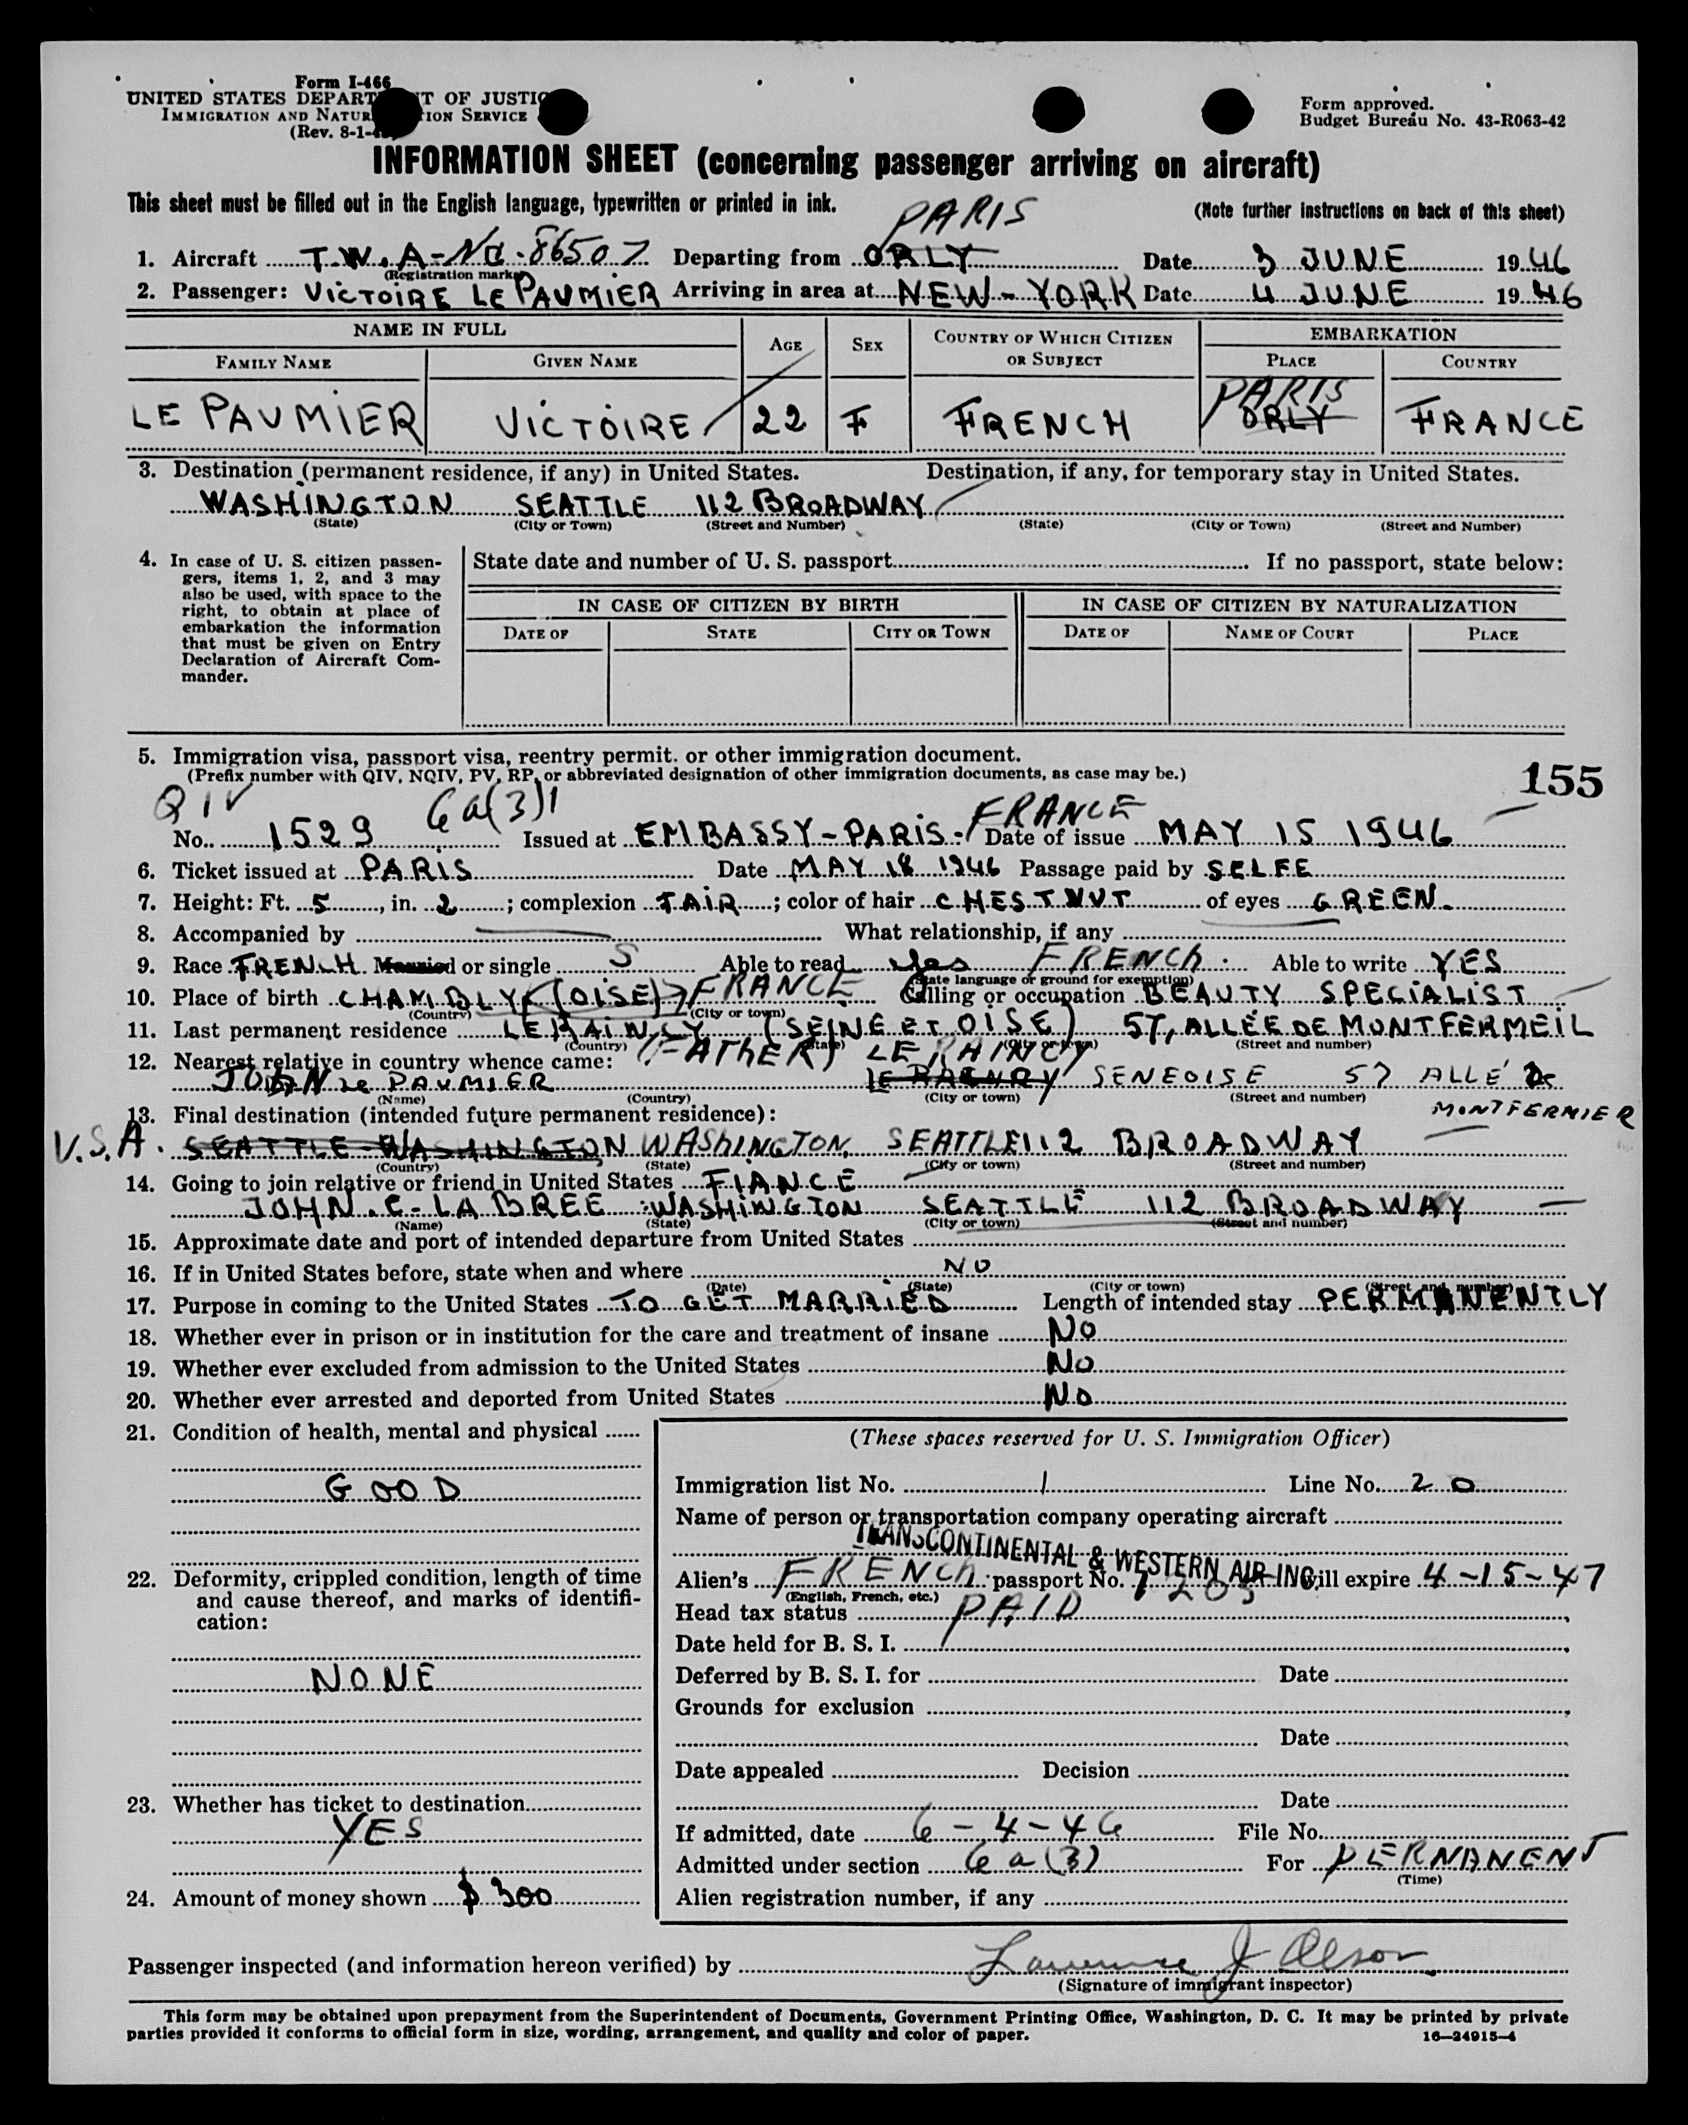 Form I-466
UNITED STATES DEPART T OF JUSTIC
IMMIGRATION AND NATUR TION SERVICE
(Rev. 8-1-
Form approved.
Budget Bureau No. 43-R063-42
INFORMATION SHEET (concerning passenger arriving on aircraft)
This sheet must be filled out in the English language, typewritten or printed in ink.
(Note further instructions on back of this sheet)
PARIS
1. Aircraft T.W.A-NC.86507 Departing from ORLY Date 3 JUNE 1946
(Registration marks)
2. Passenger: VICTOIRE LE PAUMIER Arriving in area at NEW-YORK Date 4 JUNE 1946
NAME IN FULL AGE SEX COUNTRY OF WHICH CITIZEN OR SUBJECT EMBARKATION
FAMILY NAME GIVEN NAME PLACE COUNTRY
PARIS
LE PAUMIER VICTOIRE 22 F FRENCH ORLY FRANCE
3. Destination (permanent residence, if any) in United States. Destination, if any, for temporary stay in United States.
WASHINGTON SEATTLE 112 BROADWAY
(State) (City or Town) (Street and Number) (State) (City or Town) (Street and Number)
4. In case of U. S. citizen passen-
gers, items 1, 2, and 3 may
also be used, with space to the
right, to obtain at place of
embarkation the information
that must be given on Entry
Declaration of Aircraft Com-
mander.
State date and number of U. S. passport If no passport, state below:
IN CASE OF CITIZEN BY BIRTH IN CASE OF CITIZEN BY NATURALIZATION
DATE OF STATE CITY OR TOWN DATE OF NAME OF COURT PLACE
5. Immigration visa, passport visa, reentry permit. or other immigration document.
(Prefix number with QIV, NQIV, PV, RP, or abbreviated designation of other immigration documents, as case may be.)
155
QIV 6a(3)1 FRANCE
No. 1529 Issued at EMBASSY-PARIS- Date of issue MAY 15 1946
6. Ticket issued at PARIS Date MAY 18 1946 Passage paid by SELFE
7. Height: Ft. 5, in. 2; complexion FAIR; color of hair CHESTNUT of eyes GREEN.
8. Accompanied by What relationship, if any
9. Race FRENCH Married or single S Able to read yes FRENCH Able to write YES
(State language or ground for exemption)
10. Place of birth CHAMBLY (OISE) FRANCE Calling or occupation BEAUTY SPECIALIST
(Country) (City or town)
11. Last permanent residence LE RAINCY (SEINE ET OISE) 57, ALLÉE DE MONTFERMEIL
(Country) (State) (City or town) (Street and number)
12. Nearest relative in country whence came: (FATHER) LE RAINCY
JOHN le PAUMIER SENEOISE 57 ALLÉ De
(Name) (Country) (City or town) (Street and number)
MONTFERMIER
13. Final destination (intended future permanent residence):
U.S.A. SEATTLE WASHINGTON WASHINGTON, SEATTLE 112 BROADWAY
(Country) (State) (City or town) (Street and number)
14. Going to join relative or friend in United States FIANCE
JOHN.C-LA BREE :WASHINGTON SEATTLE 112 BROADWAY
(Name) (State) (City or town) (Street and number)
15. Approximate date and port of intended departure from United States
16. If in United States before, state when and where NO
(Date) (State) (City or town) (Street and number)
17. Purpose in coming to the United States TO GET MARRIED Length of intended stay PERMANENTLY
18. Whether ever in prison or in institution for the care and treatment of insane NO
19. Whether ever excluded from admission to the United States NO
20. Whether ever arrested and deported from United States NO
21. Condition of health, mental and physical
GOOD
22. Deformity, crippled condition, length of time
and cause thereof, and marks of identifi-
cation:
NONE
23. Whether has ticket to destination
YES
24. Amount of money shown $ 300
(These spaces reserved for U. S. Immigration Officer)
Immigration list No. 1 Line No. 20
Name of person or transportation company operating aircraft
TRANSCONTINENTAL & WESTERN AIR INC.
Alien's FRENCH passport No. 7205 will expire 4-15-47
(English, French, etc.)
Head tax status PAID
Date held for B. S. I.
Deferred by B. S. I. for Date
Grounds for exclusion
Date
Date appealed Decision
Date
If admitted, date 6-4-46 File No.
Admitted under section 6a(3) For PERNANENT
(Time)
Alien registration number, if any
Passenger inspected (and information hereon verified) by Lawrence J Olson
(Signature of immigrant inspector)
This form may be obtained upon prepayment from the Superintendent of Documents, Government Printing Office, Washington, D. C. It may be printed by private
parties provided it conforms to official form in size, wording, arrangement, and quality and color of paper.
16—24915-4